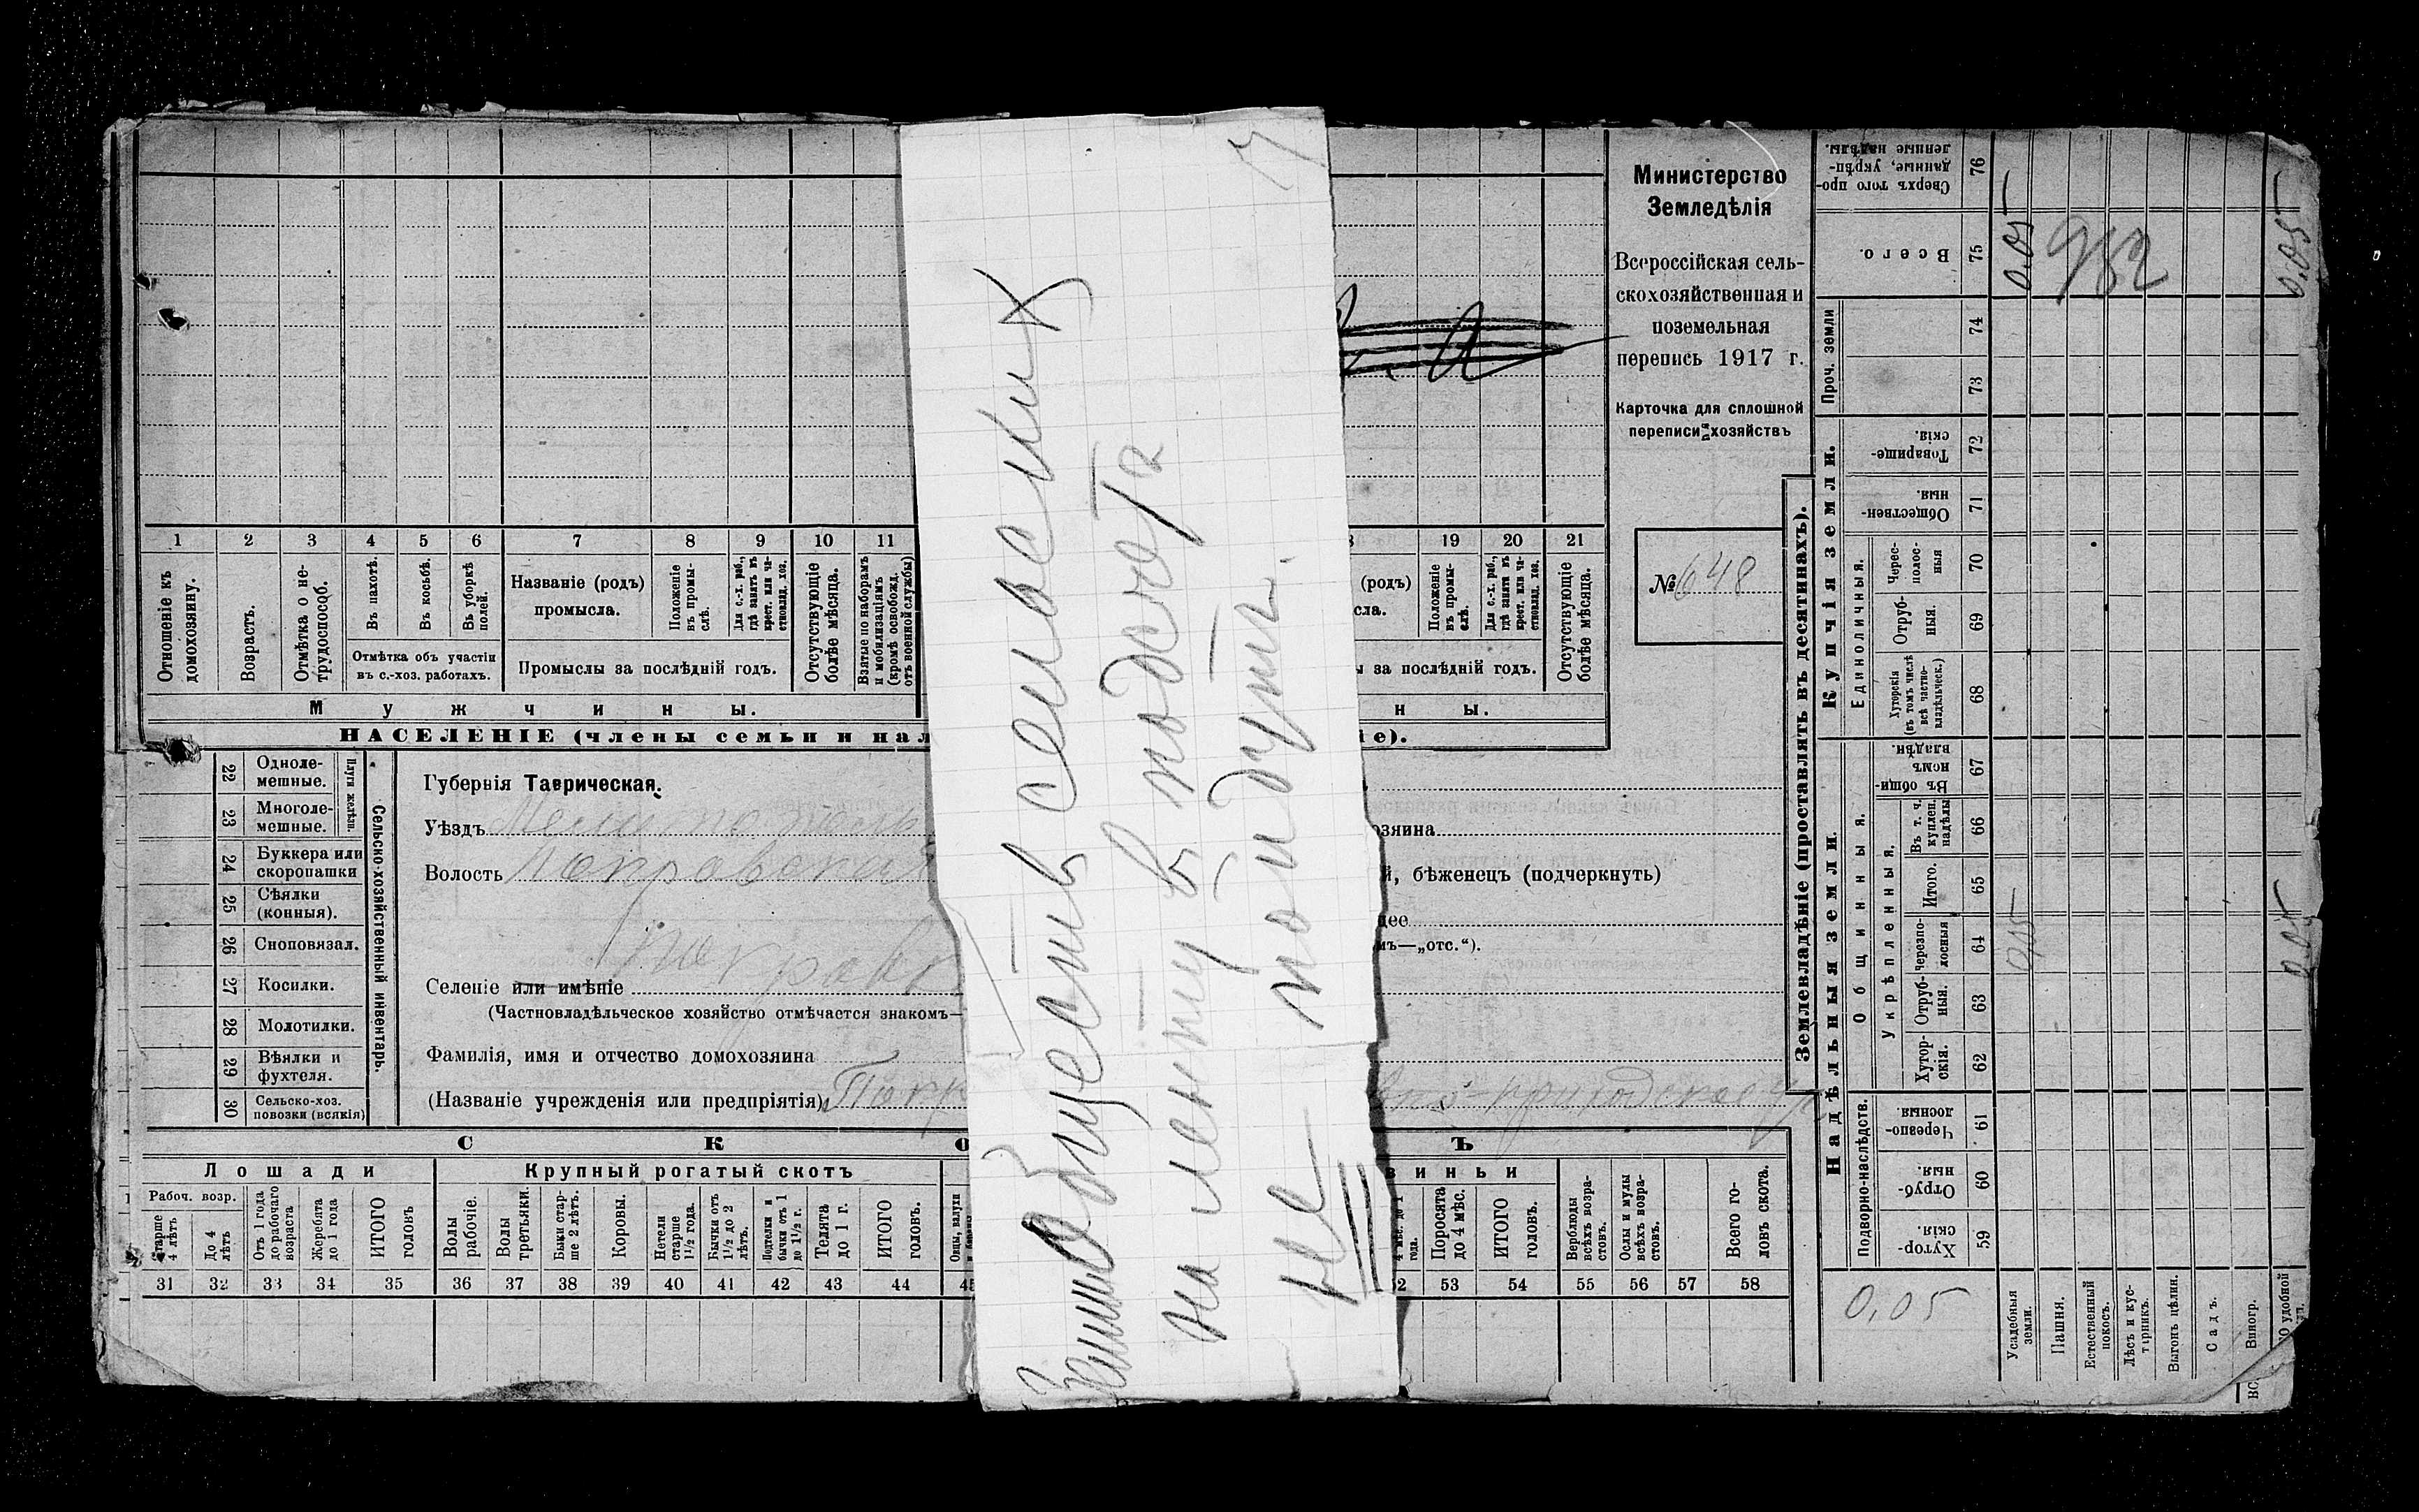 1 2 3 4 5 6 7 8 9 10 11
Отношеніе къ домохозяину.
Возрастъ.
Отмѣтка о не-
трудоспособ.
Въ пахотѣ.
Въ косьбѣ.
Въ уборкѣ
полей.
Отмѣтка объ участіи
въ с.-хоз. работахъ.
Названіе (родъ)
промысла.
Положеніе
въ промы-
слѣ.
Для с.-х. раб.,
гдѣ занятъ въ
крест. или ча-
стновлад. хоз.
Промыслы за послѣдній годъ.
Отсутствующіе
болѣе мѣсяца.
Взятые по наборамъ
и мобилизаціямъ
(кромѣ освобожд.
отъ военной службы)
Мужчины.
НАСЕЛЕНІЕ (члены семьи и нал
19 20 21
(родъ)
сла.
Положеніе
въ промы-
слѣ.
Для с.-х. раб.,
гдѣ занятъ въ
крест. или ча-
стновлад. хоз.
ы за послѣдній годъ.
Отсутствующіе
болѣе мѣсяца.
ны.
іе).
Министерство
Земледѣлія
Всероссійская сель-
скохозяйственная и
поземельная
перепись 1917 г.
Карточка для сплошной
переписи хозяйствъ
№ 648
22 Одноле-
мешные.
23 Многоле-
мешные.
Плуги желѣзн.
24 Буккера или
скоропашки
25 Сѣялки
(конныя).
26 Сноповязал.
27 Косилки.
28 Молотилки.
29 Вѣялки и
фухтеля.
30 Сельско-хоз.
повозки (всякія)
Сельско-хозяйственный инвентарь.
Губернія Таврическая.
Уѣздъ
Волость
Селеніе или имѣніе
(Частновладѣльческое хозяйство отмѣчается знакомъ—
Фамилія, имя и отчество домохозяина
(Названіе учрежденія или предпріятія)
озяина
й, бѣженецъ (подчеркнуть)
щее
мъ—„отс.“).
приходское
общественн сельских
на ленту в подсчота
не пойдути.
СКО
Ъ
Лошади
Крупный рогатый скотъ
виньи
Рабоч. возр.
Старше
4 лѣтъ
До 4
лѣтъ
Отъ 1 года
до рабочаго
возраста
Жеребята
до 1 года
ИТОГО
головъ
Волы
рабочіе.
Волы
третьяки.
Быки стар-
ше 2 лѣтъ.
Коровы.
Нетели
старше
1½ года.
Бычки отъ
1½ до 2
лѣтъ.
Подтелки и
бычки отъ 1
до 1½ г.
Телята
до 1 г.
ИТОГО
головъ.
Овцы, валухи
4 мѣс. до 1
года.
Поросята
до 4 мѣс.
ИТОГО
головъ.
Верблюды
всѣхъ возра-
стовъ.
Ослы и мулы
всѣхъ возра-
стовъ.
Всего го-
ловъ скота.
31 32 33 34 35 36 37 38 39 40 41 42 43 44 45
53 54 55 56 57 58
Землевладѣніе (проставлять въ десятинахъ).
Надѣльныя земли.
Купчія земли.
Проч. земли
Сверхъ того про-
данные, укрѣп-
ленные надѣлы.
76
Всего.
75
0.05
952
0.05
74
73
Товарище-
скія.
72
Обществен-
ныя.
71
Единоличныя.
Черес-
полос-
ныя
70
Отруб-
ныя.
69
Хуторскія
(въ томъ числѣ
всѣ частно-
владѣльческ.)
68
Общинныя.
Въ общи-
номъ
владѣн.
67
Укрѣпленныя.
Въ т. ч.
куплен.
надѣлы
66
Итого.
65
Черезпо-
лосныя
64
0.05
0.05
Отруб-
ныя.
63
Хутор-
скія.
62
Подворно-наслѣдств.
Черезпо-
лосныя
61
Отруб-
ныя.
60
Хутор-
скія.
59
0,05
Усадебныя
земли.
Пашня.
Естественный
покосъ.
Лѣсъ и кус-
тарникъ.
Выгонъ цѣлин.
Садъ.
Виногр.
удобной